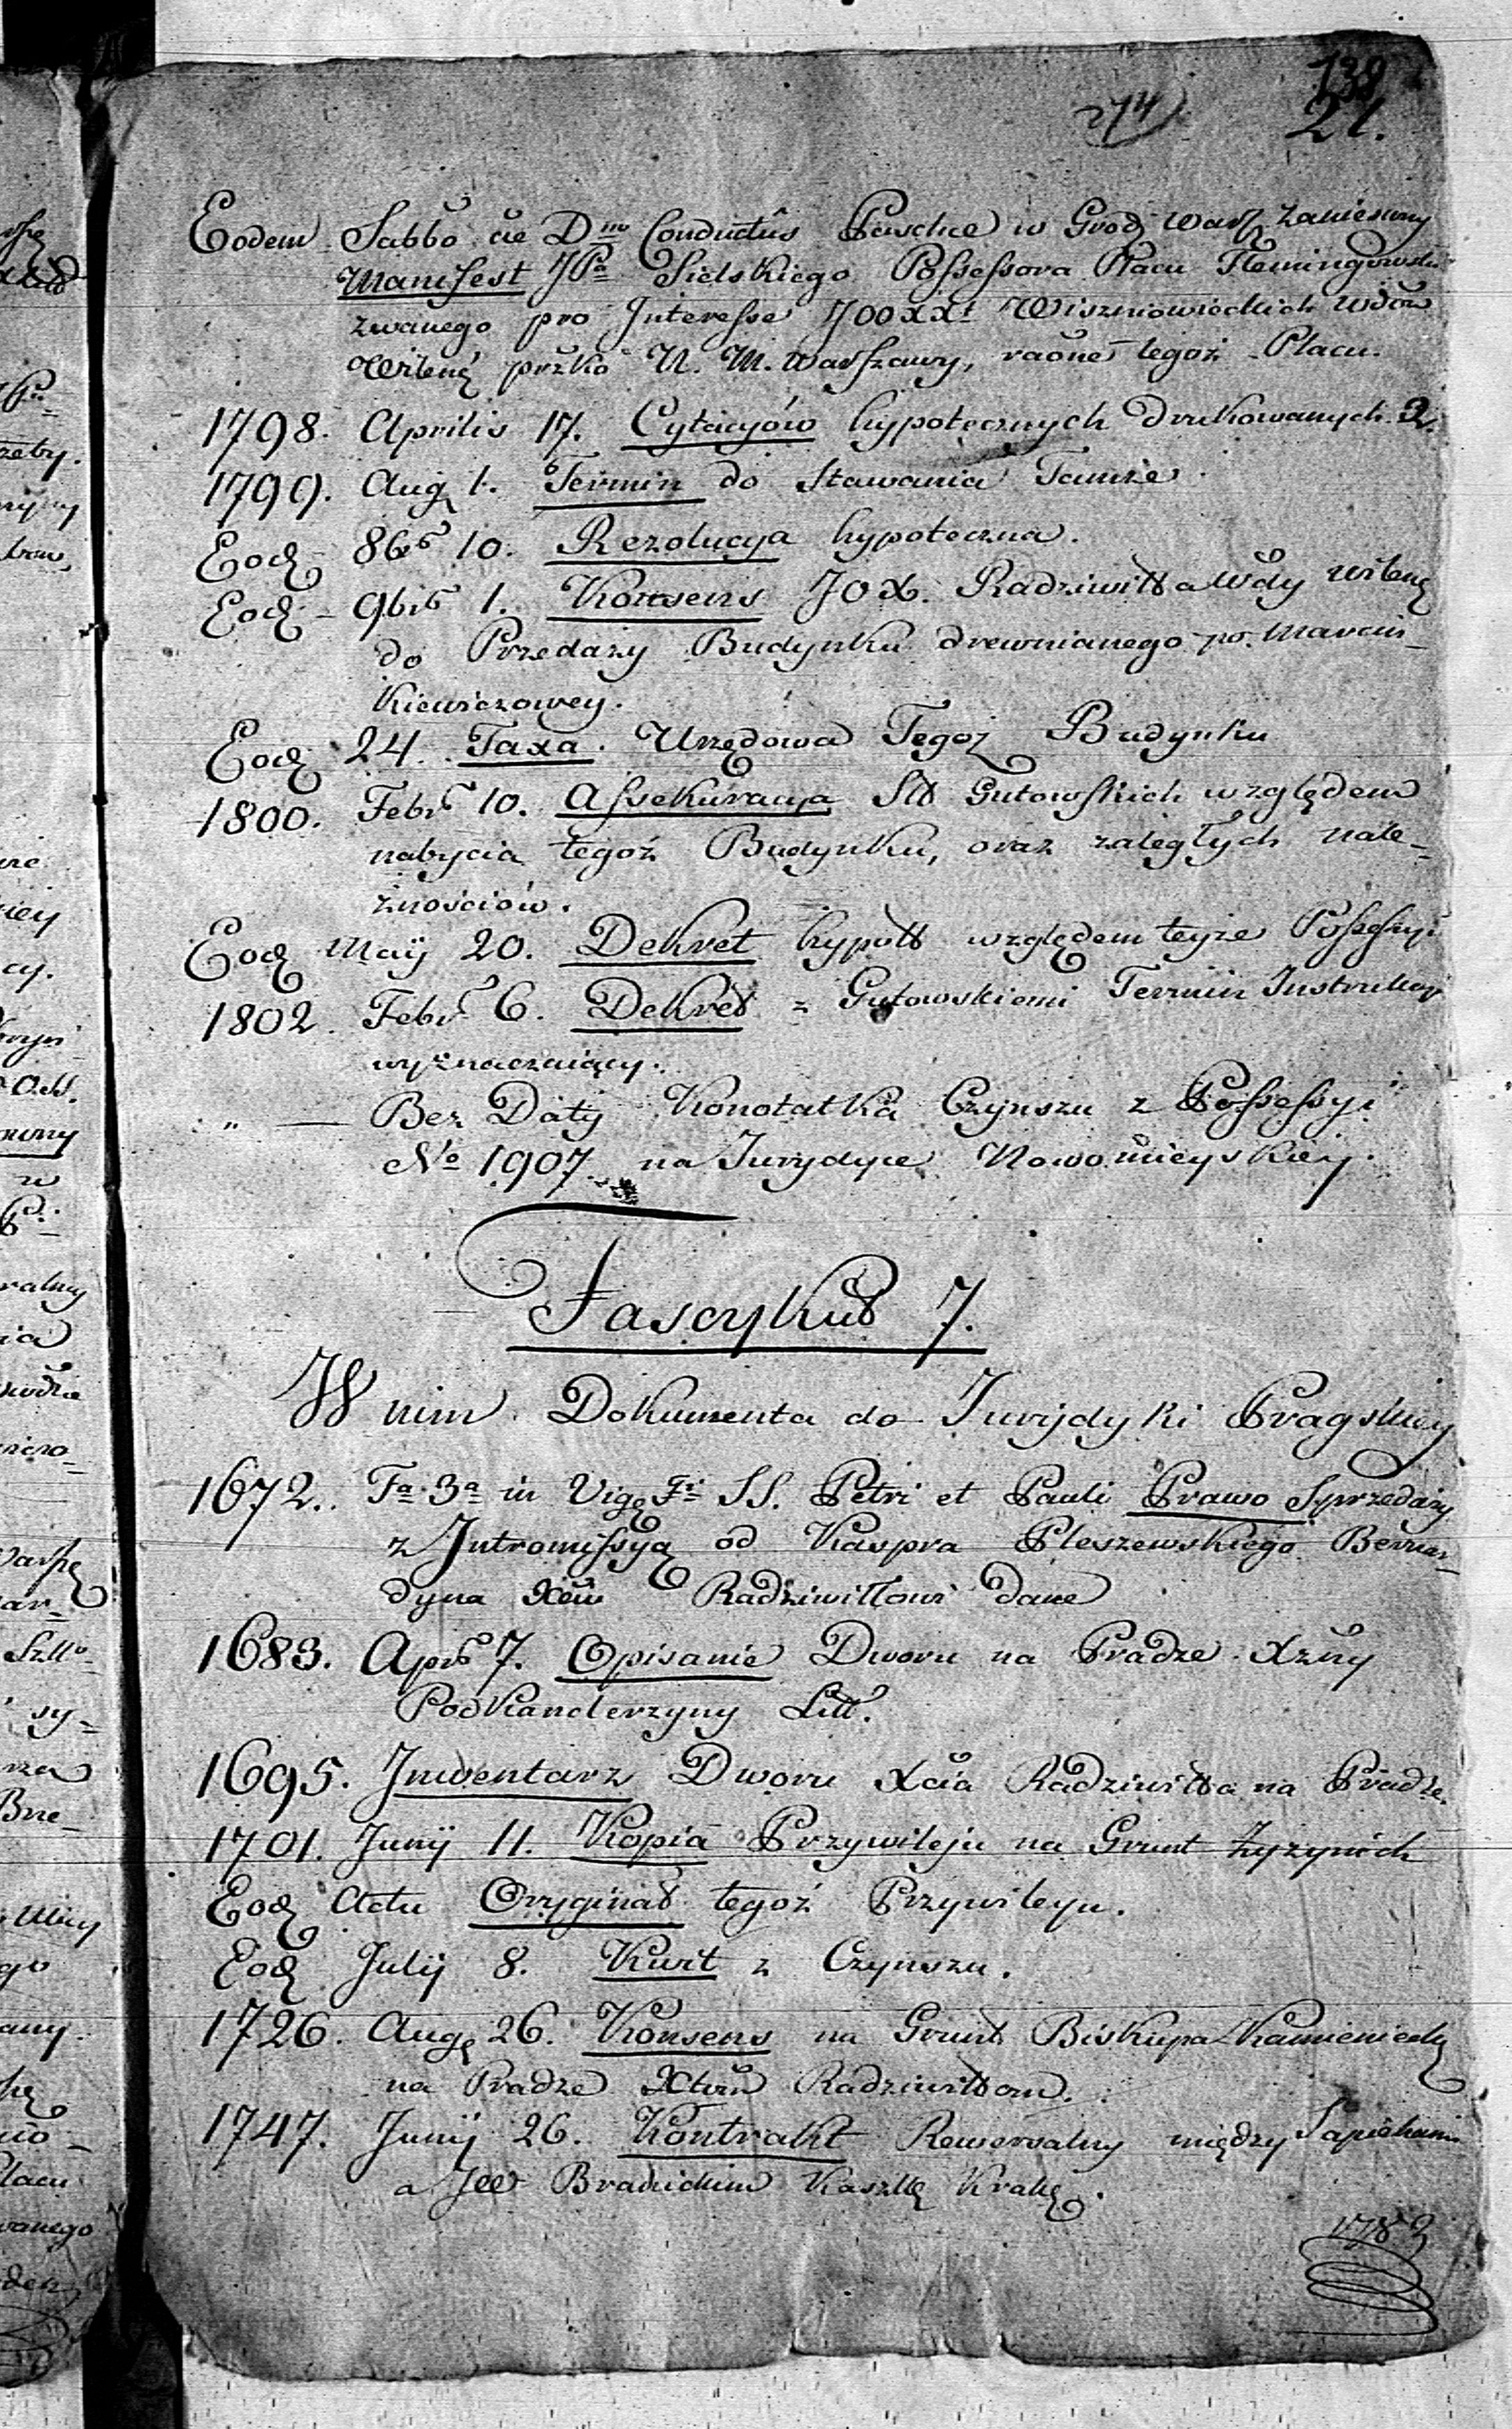 139
274)
21.
Eodem Sabbo ae Dno Conductûs Paschae w Grodz Warsz zaniesiony
Manifest JPa Sielskiego Possessora Placu Flemingowski
zwanego pro Interesse JOOXXt Wiszniowieckich Wdów
Wileń przko M. M. Warszawy, raõne tegoż Placu.
1798. Aprilis 17. Cytacyów hypotecznych drukowanych 2.
1799. Aug 1. Termin do stawania Tamże
Eod - 8br 10. Rezolucya hypoteczna.
Eod - 9br 1. Konsens JOX. Radziwiłła Wdy Wileń
do Przedaży Budynku drewnianego po Marcin-
kiewiczowey.
Eod 24. Taxa Urzędowa Tegoż Budynku
1800. Febr 10. Assekuracya Sł Gutowskich względem
nabycia tegoż Budynku, oraz zaległych nale-
żnościów.
Eod Maÿ 20. Dekret hypott względem teyże Possessyi
1802. Febr 6. Dekret z Gutowskiemi Termin Instrukcyi
wyznaczaiący.
„ — Bez Daty Konotatka Czynszu z Possessyi
No 1907 na Jurydyce Nowomieyskiey.
Fascykuł 7.
W nim Dokumenta do Jurydyki Pragskiey
1672. Fa 3a in Vig Fi SS. Petri et Pauli Prawo Sprzedaży
z Intromissyą od Kaspra Pleszewskiego Bernar-
dyna Xciu Radziwiłłowi dane
1683. Apr 7. Opisanie Dworu na Pradze Xżny
Podkanclerzyny Litt.
1695. Inwentarz Dworu Xcia Radziwiłła na Pradze.
1701. Junÿ 11. Kopia Przywileju na Grunt Żyzynich
Eod Actu Oryginał tegoż Przywileyu.
Eod Julÿ 8. Kwit z Czynszu.
1726. Aug 26. Konsens na Grunt Biskupa Kamieniecki
na Pradze Xtwu Radziwiłłom.
1747. Junÿ 26. Kontrakt Rewersalny między Sapiehami
a JW Branickim Kasztt Krak.
1782